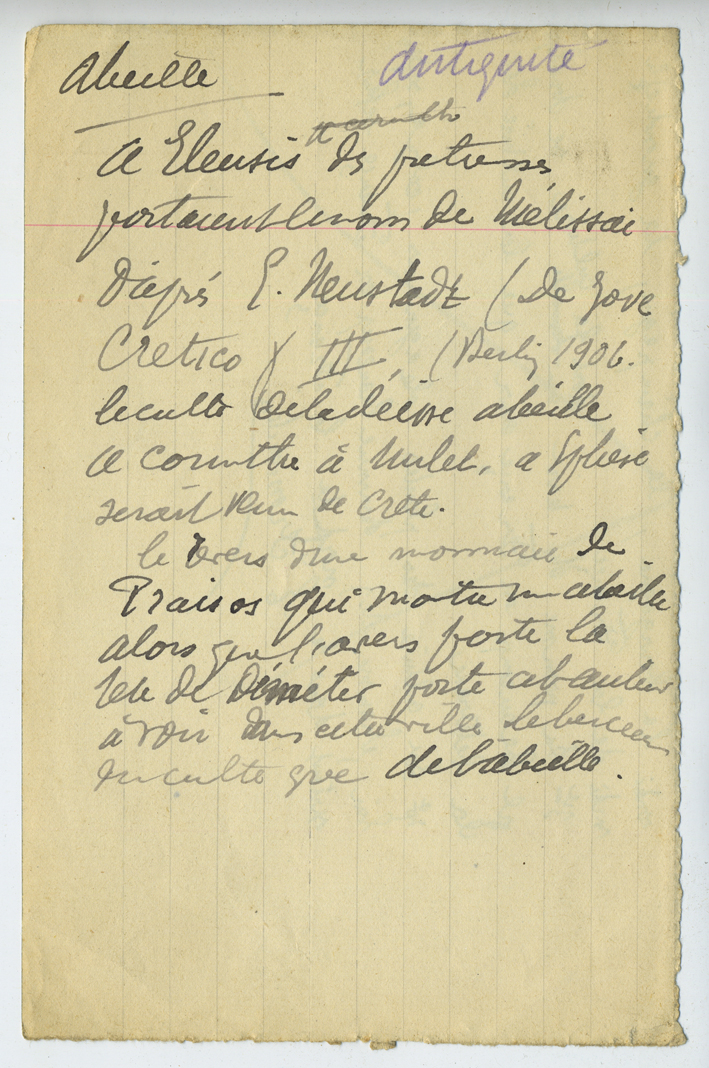 Abeille
Antiquité
et corinthe
A Eleusis des pretresses
portaient le nom de Mélissai
D'après E. Neustadt (De Jove
Cretico § III, (Berlin 1906.
le culte de la déesse abeille
a corinthe à Milet, a Ephèse
serait venu de Crète.
le revers d'une monnaie de
Praisos qui montre une abeille
alors que l'avers porte la
tete de Déméter porte
à voir dans cette ville le berceau
du culte grec de l'abeille.